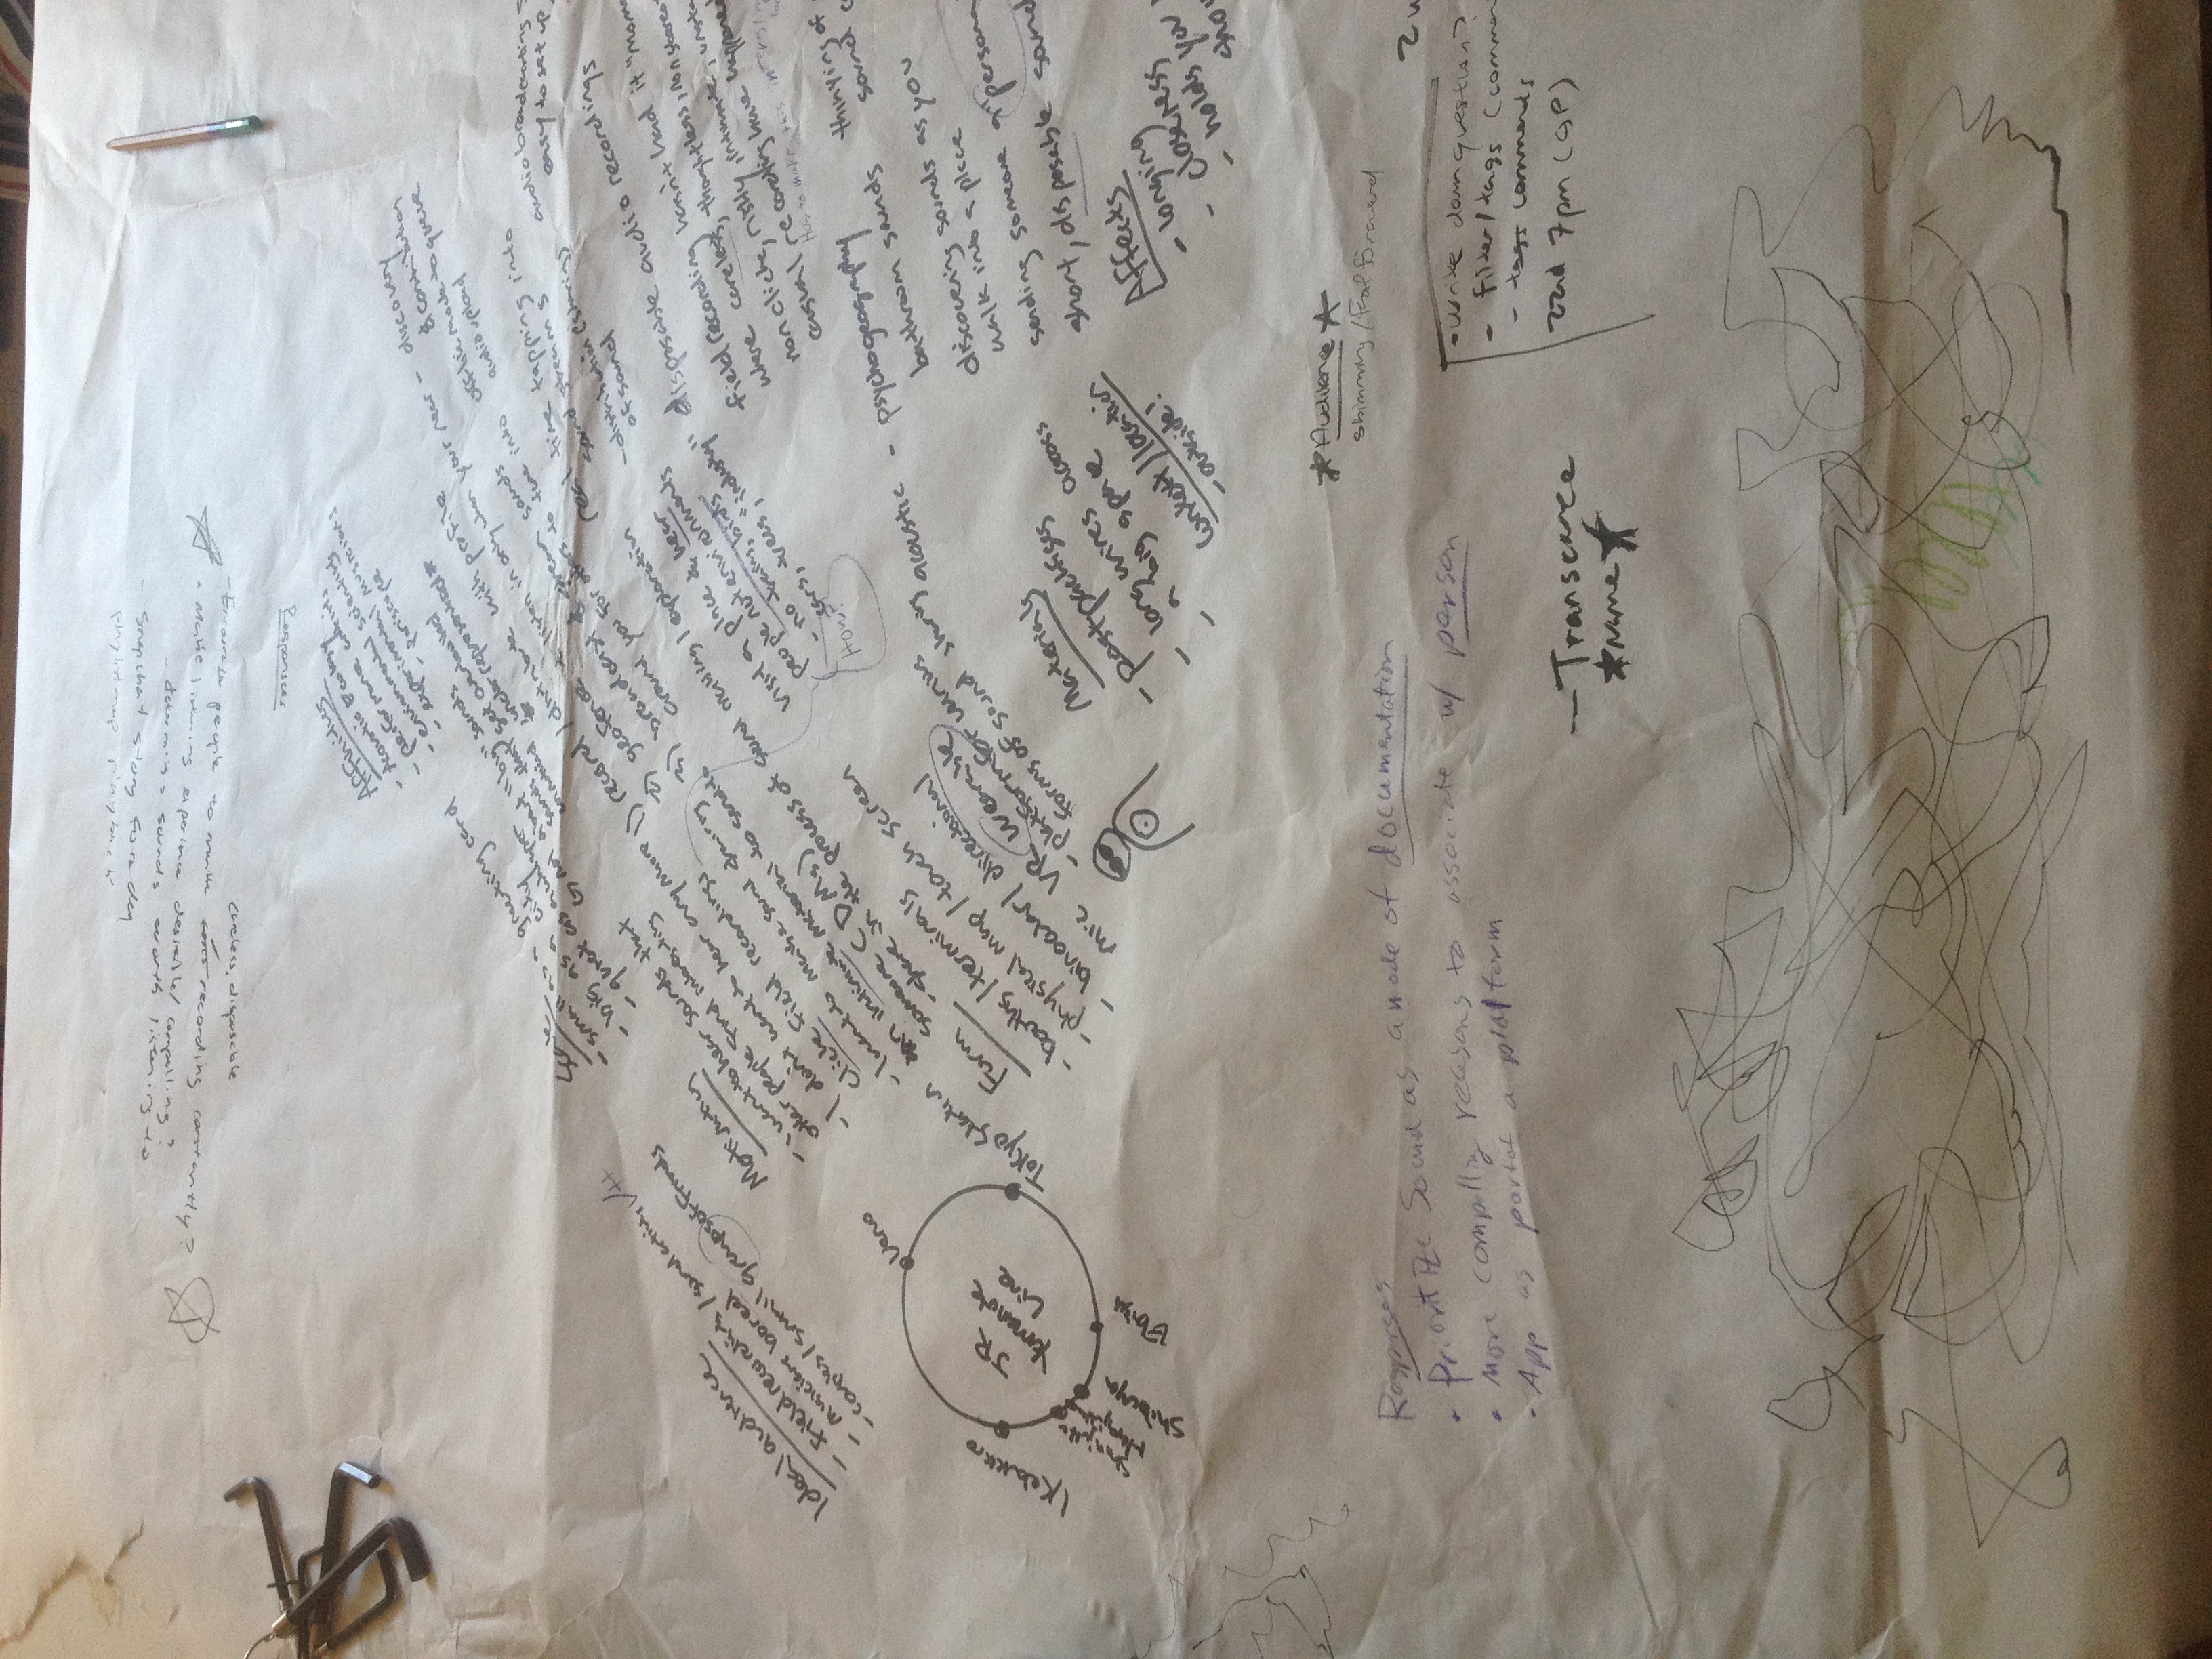 Responses
careless, disposable
- Encourage people to make recording constantly?
- Make listening experience desirable/compelling?
- determine sounds worth listening to
- Snapchat story for a day
Affinities
- Acoustic Ecology
- performance artists
- environmental scientists
- experimental musicians
- periscope
Scale
- small as a greeting card
- big as a city
- quiet as a whisper
not about "big" sounds
sounds that get overlooked
under represented
Ideal audience
- field recordists / sound artists
- musician bored
- couples / small groups of friends
Motivation
- I want to hear sounds that
other people find interesting
- I don't want to hear anymore
cliche field recordings
- I want to make sound sharing
an intimate material to send to
someone (DMs)
- share in the process of sound making / exploration
1) record / distribute with profile
2) geofence listen in only when your near - discovery
& contribution
3) broadcast & stream sounds
around you for others to tune into
offline mode to queue
audio upload
real time tapping into
sound streams
- distribution (sharing)
of sound
audio broadcasting
easy to set up
visit a place & hear
people not environments
- no trains, birds
cars, trees, "industry"
How?
disposable audio recordings
field recording hasn't had it "mom
where careless, thoughtless, non stereo
non cliche, risky, intimate,
casual recording have happened
How to make this interesting
JR
Yamanote
Line
Ueno
Tokyo Station
Ebisu
Shibuya
Ikebukuro
Form
- booths / terminals
- physical map / touch screen
- binocular / directional
mic VR wearable
- platform for various
forms of sound sharing
acoustic - psychogeography
bathroom sounds
thinking of
sound
discovering sounds as you
walk into a place
sending someone a "persona
short, disposable sound
Materials
- long wires across
a big space
Context / location
- outside!
Affects
- longing
- closeness
- holds you
★ Audience ★
Responses
• Prioritize Sound as a mode of documentation
• More compelling reasons to associate w/ person
• App as part of a platform
• Write down question?
- filter/tags (commen
- tags comments
22nd 7pm
★ Name ★